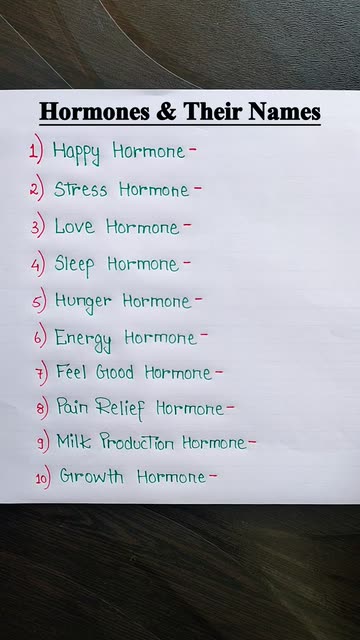 Hormones & Their Names
1) Happy Hormone -
2) Stress Hormone -
3) Love Hormone -
4) Sleep Hormone -
5) Hunger Hormone -
6) Energy Hormone -
7) Feel Good Hormone -
8) Pain Relief Hormone -
9) Milk Production Hormone -
10) Growth Hormone -